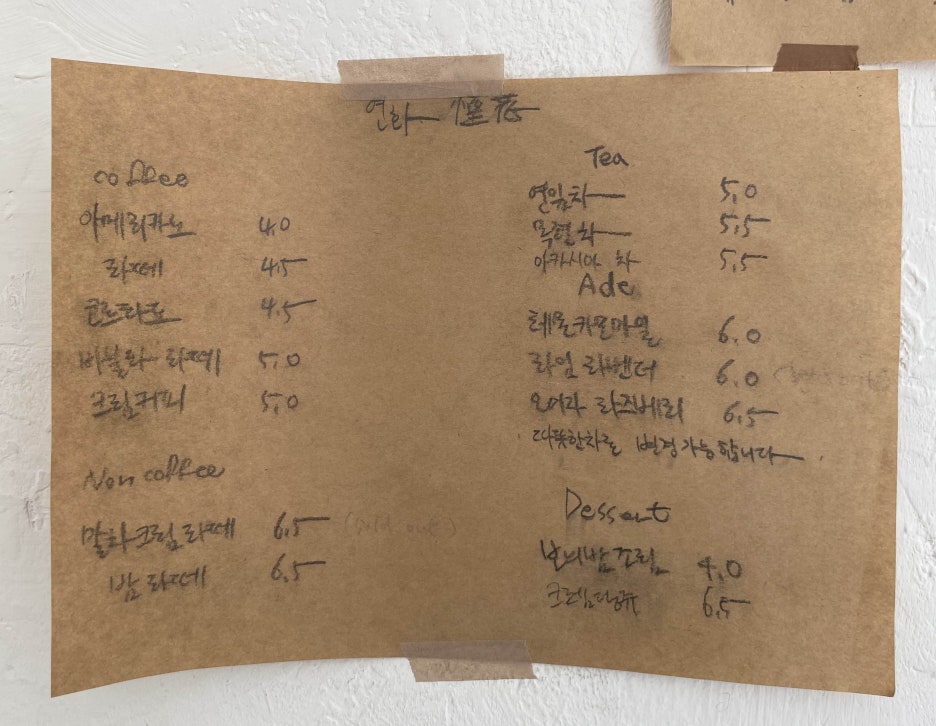 연화
coffee
아메리카노 4.0
라떼 4.5
코르타도 4.5
바닐라 라떼 5.0
크림커피 5.0
Non coffee
말차크림라떼 6.5 (Sold out)
밤라떼 6.5
Tea
연잎차 5.0
목련차 5.5
아카시아 차 5.5
Ade
레몬카모마일 6.0
라임 라벤더 6.0
오미자 라즈베리 6.5
따뜻한차로 변경가능합니다.
Dessert
보늬밤조림 4.0
6.5